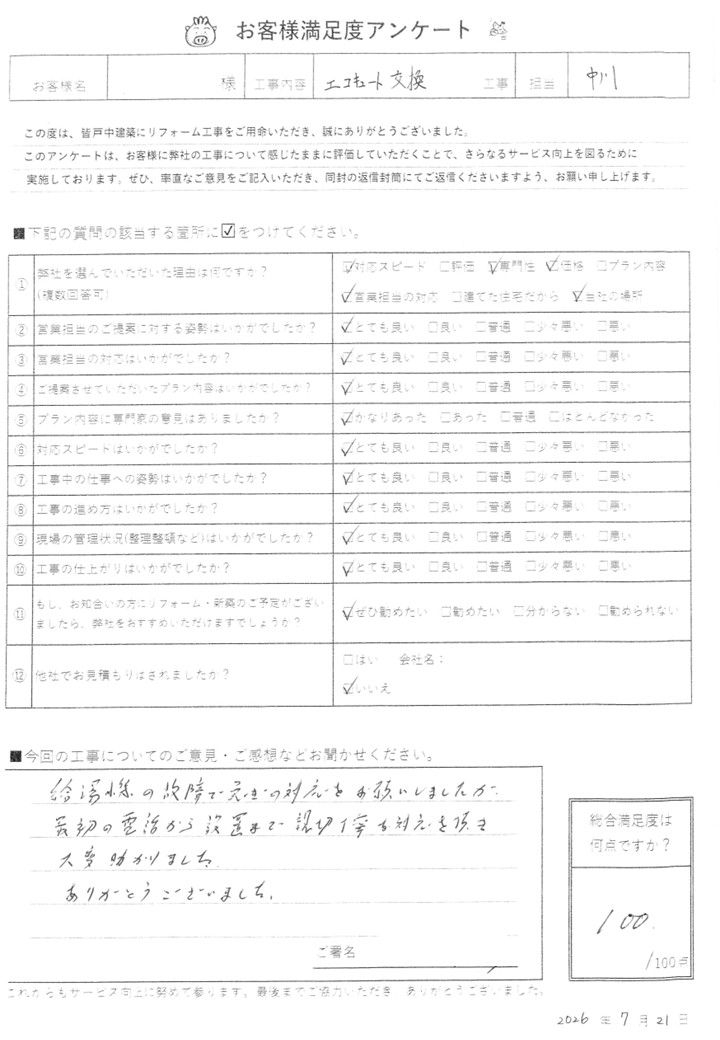 お客様満足度アンケート
お客様名 様 工事内容 エコキュート交換 工事 担当 中川
この度は、皆戸中建築にリフォーム工事をご用命いただき、誠にありがとうございました。
このアンケートは、お客様に弊社の工事について感じたままに評価していただくことで、さらなるサービス向上を図るために
実施しております。ぜひ、率直なご意見をご記入いただき、同封の返信封筒にてご返信くださいますよう、お願い申し上げます。
■下記の質問の該当する箇所に☑をつけてください。
① 弊社を選んでいただいた理由は何ですか？
(複数回答可)
☑対応スピード □評価 ☑専門性 ☑価格 □プラン内容
☑営業担当の対応 □建てた住宅だから ☑当社の場所
② 営業担当のご提案に対する姿勢はいかがでしたか？ ☑とても良い □良い □普通 □少々悪い □悪い
③ 営業担当の対応はいかがでしたか？ ☑とても良い □良い □普通 □少々悪い □悪い
④ ご提案させていただいたプラン内容はいかがでしたか？ ☑とても良い □良い □普通 □少々悪い □悪い
⑤ プラン内容に専門家の意見はありましたか？ ☑かなりあった □あった □普通 □ほとんどなかった
⑥ 対応スピードはいかがでしたか？ ☑とても良い □良い □普通 □少々悪い □悪い
⑦ 工事中の仕事への姿勢はいかがでしたか？ ☑とても良い □良い □普通 □少々悪い □悪い
⑧ 工事の進め方はいかがでしたか？ ☑とても良い □良い □普通 □少々悪い □悪い
⑨ 現場の管理状況(整理整頓など)はいかがでしたか？ ☑とても良い □良い □普通 □少々悪い □悪い
⑩ 工事の仕上がりはいかがでしたか？ ☑とても良い □良い □普通 □少々悪い □悪い
⑪ もし、お知合いの方にリフォーム・新築のご予定がござい
ましたら、弊社をおすすめいただけますでしょうか？
☑ぜひ勧めたい □勧めたい □分からない □勧められない
⑫ 他社でお見積もりはされましたか？
□はい 会社名：
☑いいえ
■今回の工事についてのご意見・ご感想などお聞かせください。
給湯機の故障で急ぎの対応をお願いしましたが
最初の電話から設置まで親切丁寧な対応を頂き
大変助かりました。
ありがとうございました。
ご署名
総合満足度は
何点ですか？
100
/100点
これからもサービス向上に努めて参ります。最後までご協力いただき ありがとうございました。
2026年7月21日